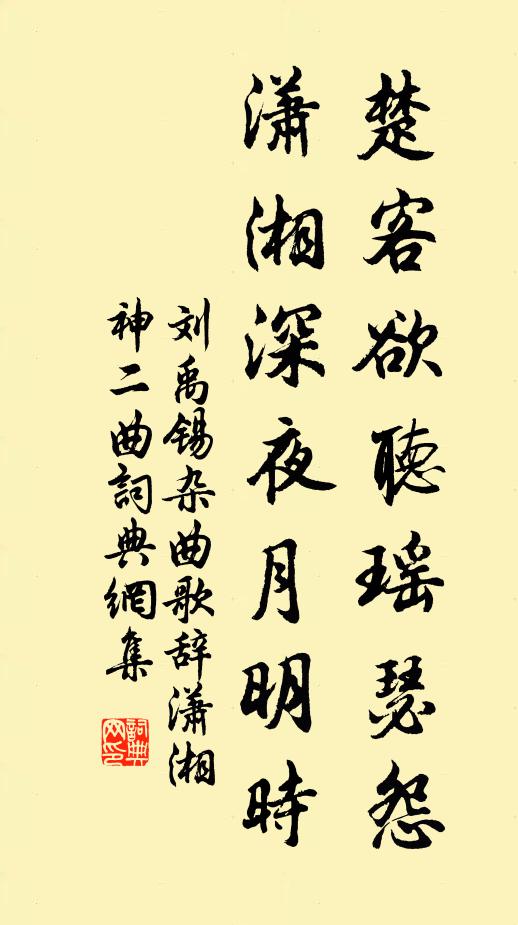 楚客欲聽瑶瑟怨
瀟湘深夜月明時
刘禹锡杂曲歌辞瀟湘
神二曲詞典網集
詞典網印